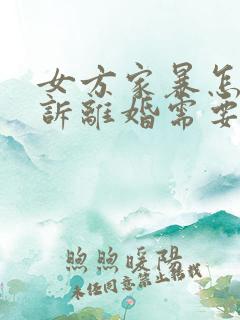 女方家暴怎
訴離婚需要
煦煦暖陽
未经同意禁止转载